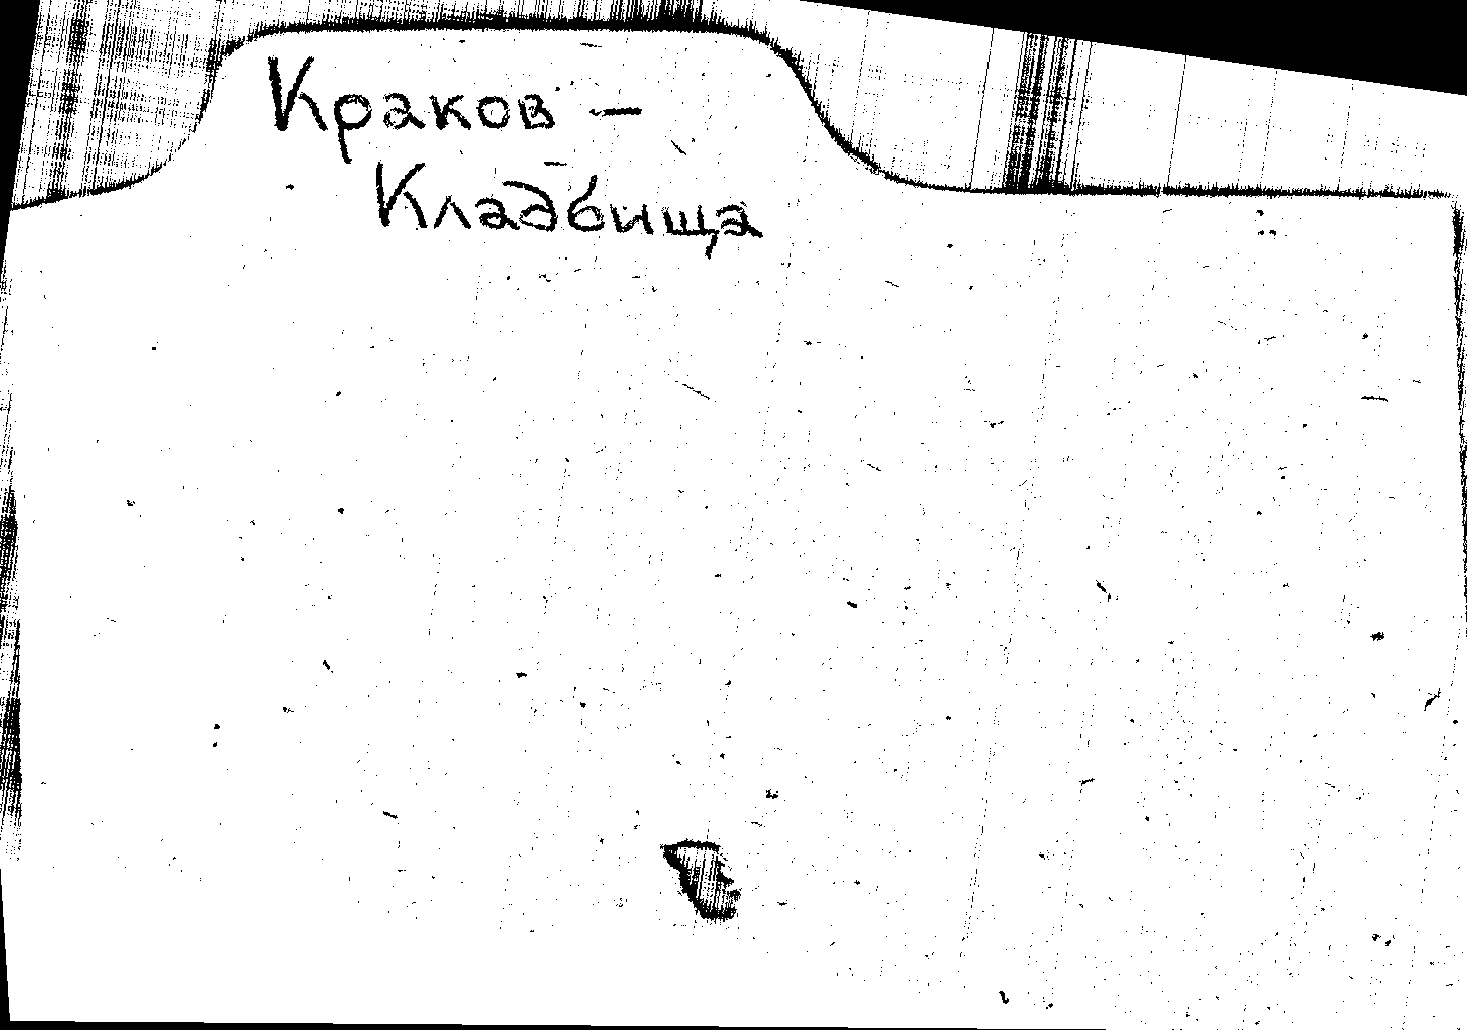 Краков —
Кладбища